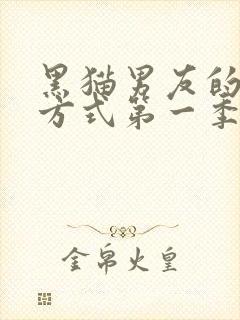 黑猫男友的
方式第一季
金帛火皇